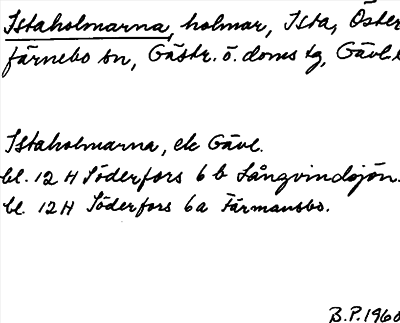 Istaholmarna, holmar, Ista, Öster
färnebo sn, Gästr. ö. doms tg, Gävl. l
Istaholmarna, ek Gävl.
bl. 12 H Söderfors 6 b Långvindsjön.
bl. 12 H Söderfors 6a Färmansbo.
B.P. 1960